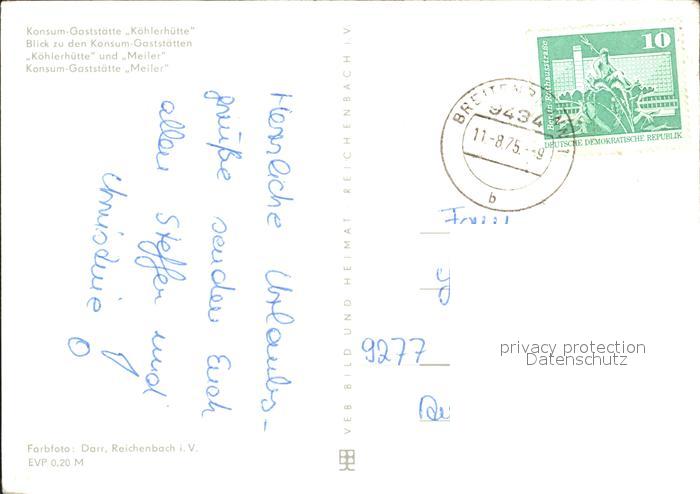 Konsum-Gaststätte „Köhlerhütte"
Blick zu den Konsum-Gaststätten
„Köhlerhütte" und „Meiler"
Konsum-Gaststätte „Meiler"
Herrliche Urlaubs-
grüße senden Euch
allen Steffen und
Christine
Farbfoto: Darr, Reichenbach i. V.
EVP 0,20 M
VEB BILD UND HEIMAT REICHENBACH I.V.
10
Berlin-Rathausstraße
DEUTSCHE DEMOKRATISCHE REPUBLIK
9434
11-8.75.-9
b
9277
privacy protection
Datenschutz